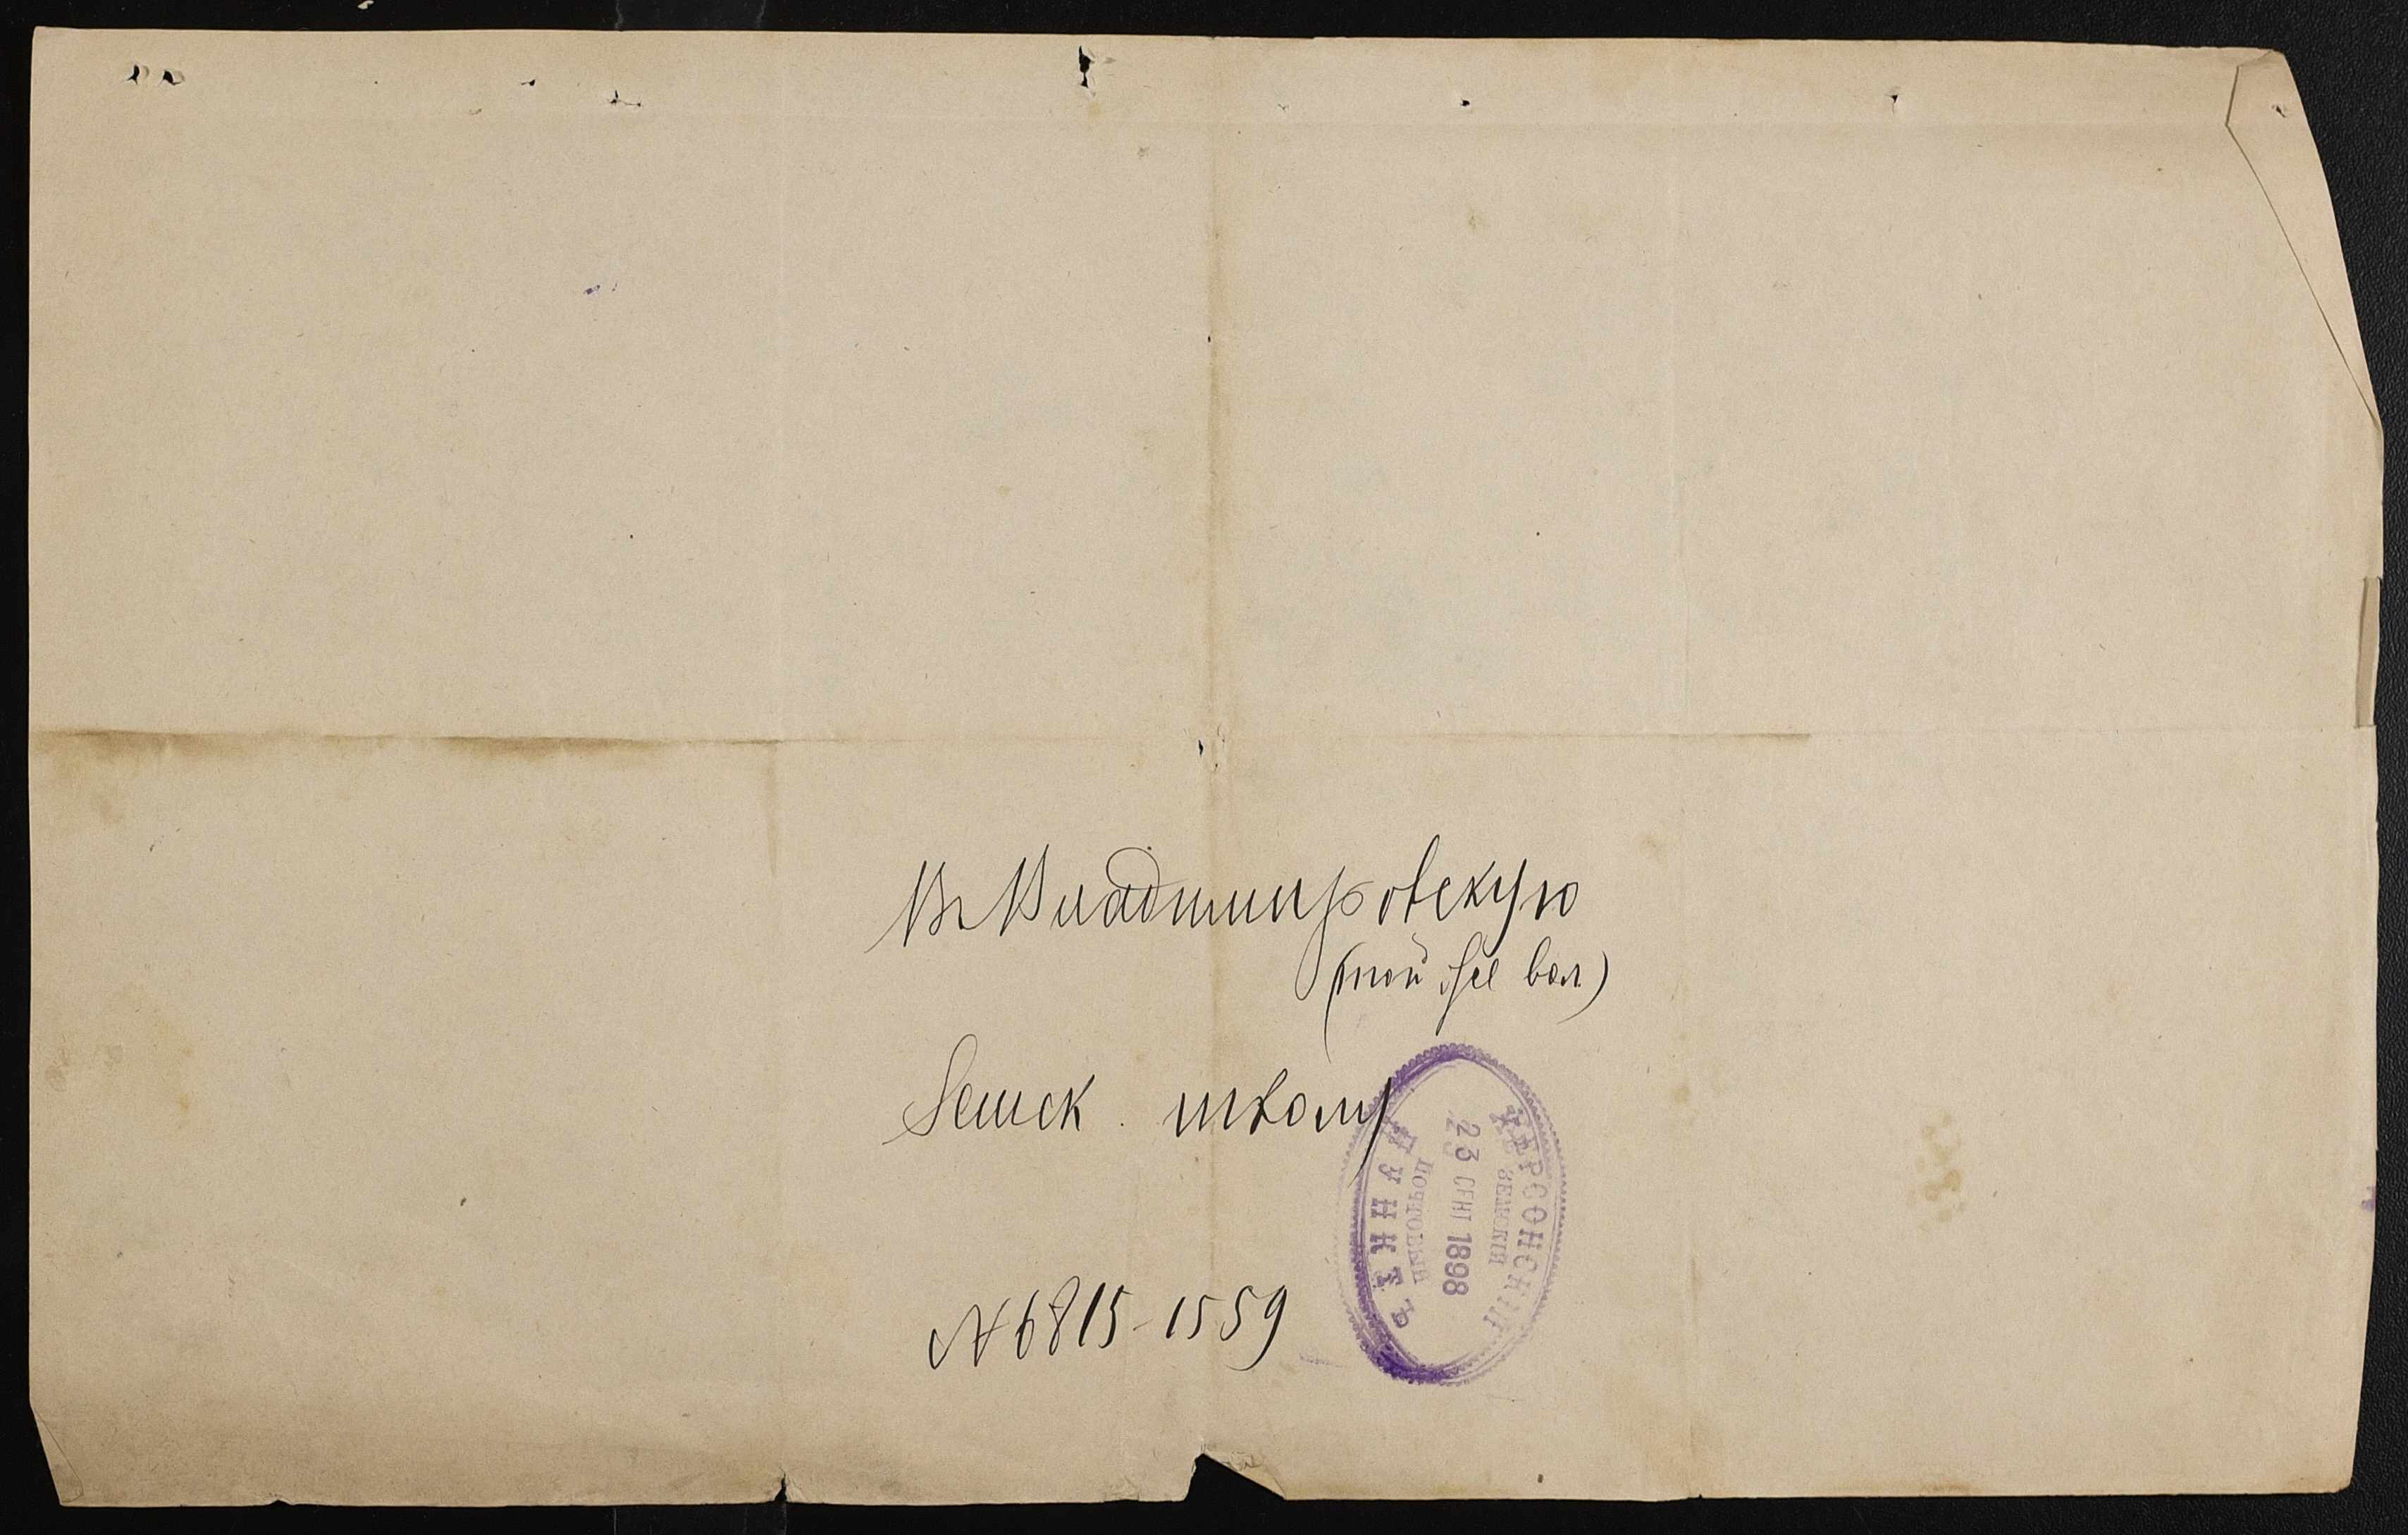 Въ Владимировскую
(той же вол)
Земск. школу
№ 6815-1559
ХЕРСОНСКІЙ
ЗЕМСКІЙ
23 СЕНТ 1898
ПОЧТОВЫЙ
ПУНКТЪ